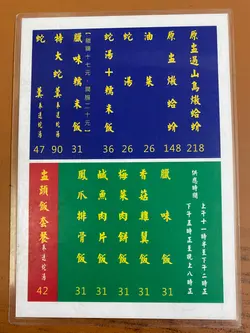 原盅過山烏燉蛤蚧 218
原盅燉蛤蚧 148
油菜 28
蛇湯 26
蛇湯+糯米飯 36
十七元﹐潤腸二十元】
臘味糯米飯 31
特大蛇羹 奉送蛇湯 90
蛇羹 奉送蛇湯 47
供應時間
上午十一時半至下午二時正
下午五時正至晚上八時正
臘味飯 31
香菇雞翼飯 31
梅菜肉餅飯 31
鹹魚肉片飯 31
鳳爪排骨飯 31
盅頭飯套餐 奉送蛇湯 42